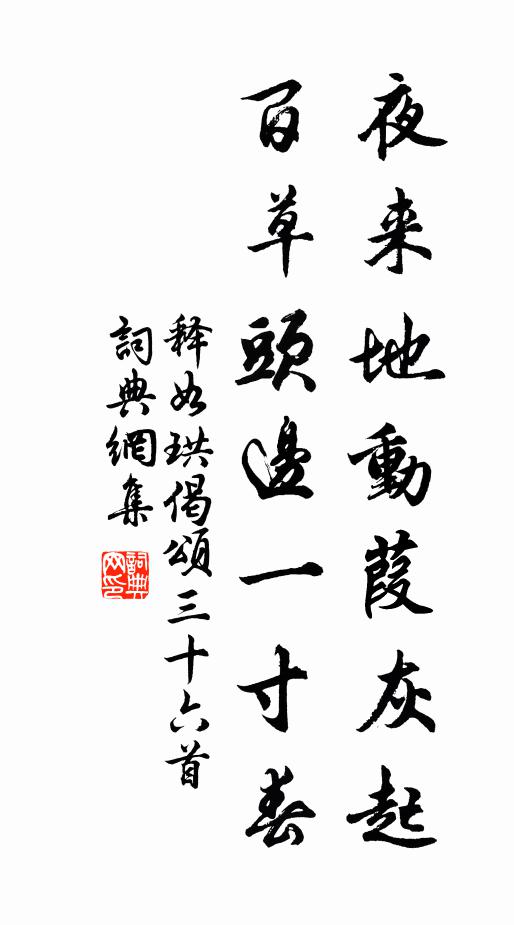 夜来地動葭灰起
百草頭邊一寸春
释如珙偈頌三十六首
詞典網集
詞典网印